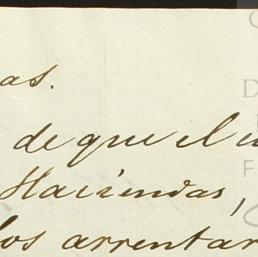 as.
de que el
Haciendas,
los arrentar